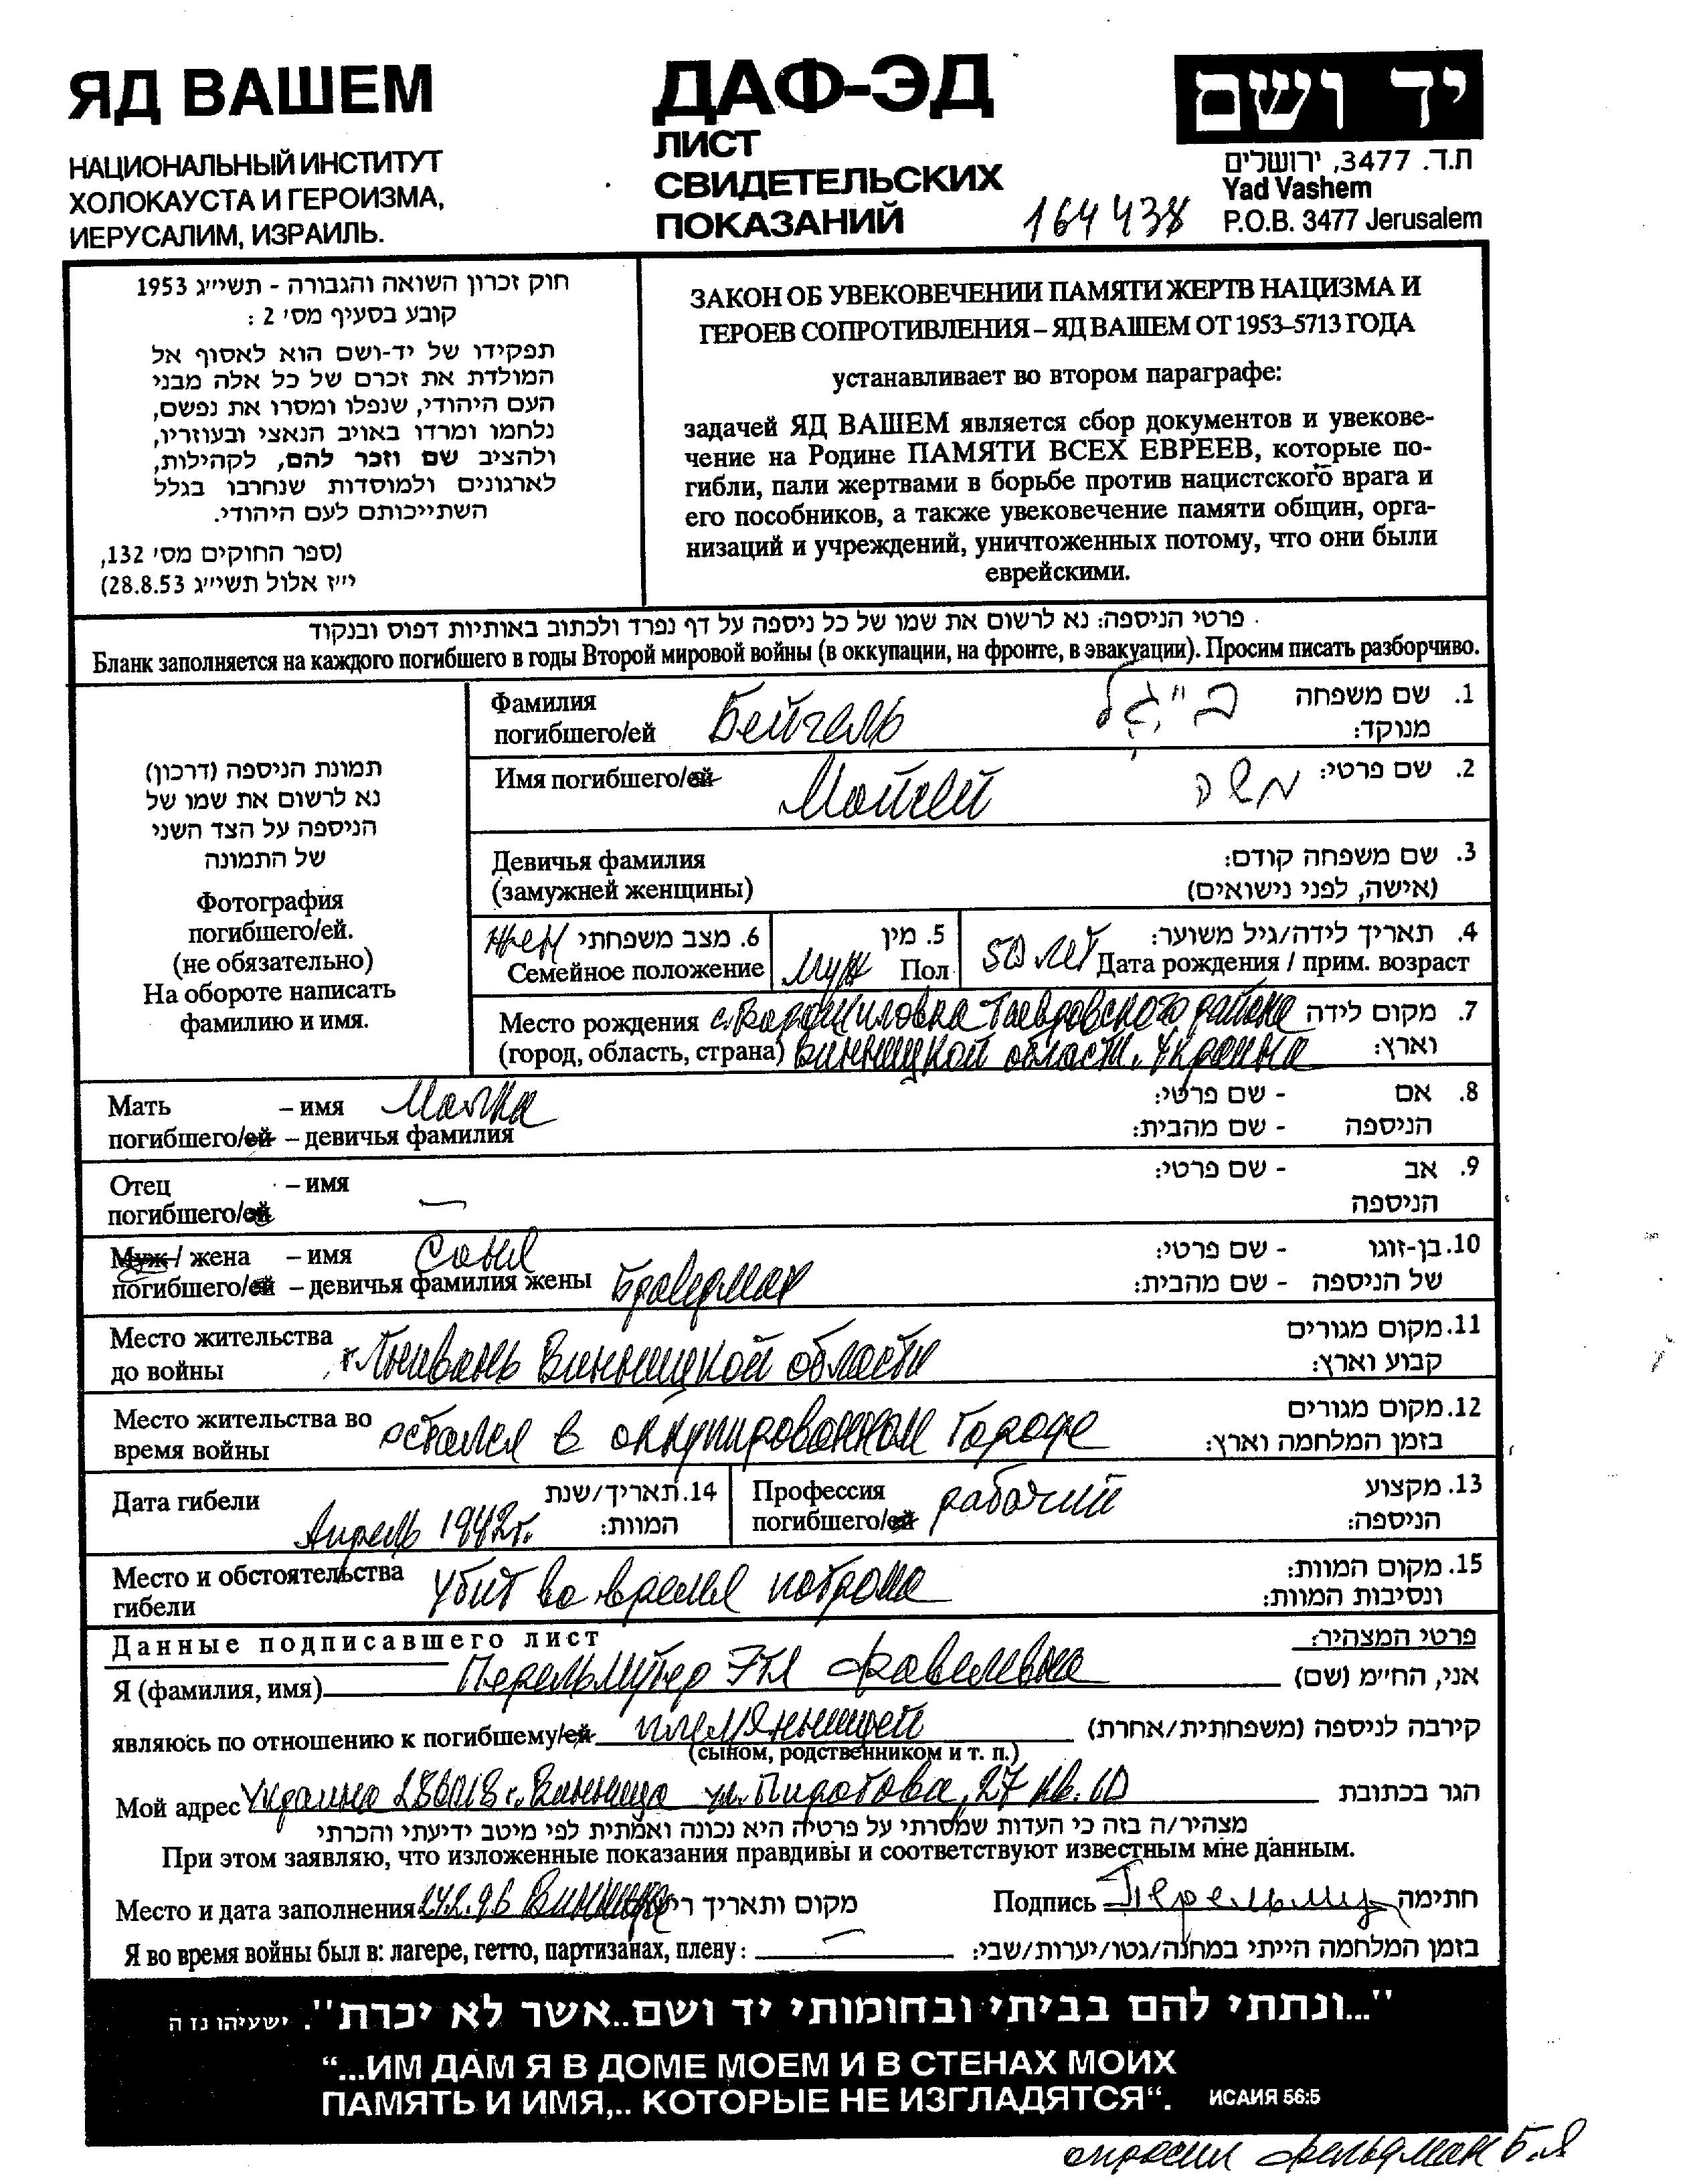 ЯД ВАШЕМ
НАЦИОНАЛЬНЫЙ ИНСТИТУТ
ХОЛОКАУСТА И ГЕРОИЗМА,
ИЕРУСАЛИМ, ИЗРАИЛЬ.
ДАФ-ЭД
ЛИСТ
СВИДЕТЕЛЬСКИХ
ПОКАЗАНИЙ
164438
יד ושם
ת.ד. 3477, ירושלים
Yad Vashem
P.O.B. 3477 Jerusalem
חוק זכרון השואה והגבורה - תשי״ג 1953
קובע בסעיף מס׳ 2 :
תפקידו של יד-ושם הוא לאסוף אל
המולדת את זכרם של כל אלה מבני
העם היהודי, שנפלו ומסרו את נפשם,
נלחמו ומרדו באויב הנאצי ובעוזריו,
ולהציב שם וזכר להם, לקהילות,
לארגונים ולמוסדות שנחרבו בגלל
השתייכותם לעם היהודי.
(ספר החוקים מס׳ 132,
י״ז אלול תשי״ג 28.8.53)
ЗАКОН ОБ УВЕКОВЕЧЕНИИ ПАМЯТИ ЖЕРТВ НАЦИЗМА И
ГЕРОЕВ СОПРОТИВЛЕНИЯ – ЯД ВАШЕМ ОТ 1953–5713 ГОДА
устанавливает во втором параграфе:
задачей ЯД ВАШЕМ является сбор документов и увекове-
чение на Родине ПАМЯТИ ВСЕХ ЕВРЕЕВ, которые по-
гибли, пали жертвами в борьбе против нацистского врага и
его пособников, а также увековечение памяти общин, орга-
низаций и учреждений, уничтоженных потому, что они были
еврейскими.
פרטי הניספה: נא לרשום את שמו של כל ניספה על דף נפרד ולכתוב באותיות דפוס ובנקוד
Бланк заполняется на каждого погибшего в годы Второй мировой войны (в оккупации, на фронте, в эвакуации). Просим писать разборчиво.
תמונת הניספה (דרכון)
נא לרשום את שמו של
הניספה על הצד השני
של התמונה
Фотография
погибшего/ей.
(не обязательно)
На обороте написать
фамилию и имя.
Фамилия
погибшего/ей Бейгель
בייגל 1. שם משפחה
מנוקד:
Имя погибшего/ей Мотей
משה 2. שם פרטי:
Девичья фамилия
(замужней женщины)
3. שם משפחה קודם:
(אישה, לפני נישואים)
жен 6. מצב משפחתי
Семейное положение
5. מין
муж Пол
4. תאריך לידה/גיל משוער:
50 лет Дата рождения / прим. возраст
Место рождения с. Ворошиловка Тывровского района 7. מקום לידה
(город, область, страна) Винницкой области. Украина וארץ:
Мать – имя Малка 8. אם - שם פרטי:
погибшего/ей – девичья фамилия הניספה - שם מהבית:
Отец – имя 9. אב - שם פרטי:
погибшего/ей — הניספה
Муж / жена – имя Соня 10. בן-זוגו - שם פרטי:
погибшего/ей – девичья фамилия жены Браверман של הניספה - שם מהבית:
Место жительства
до войны г. Гнивань Винницкой области
11. מקום מגורים
קבוע וארץ:
Место жительства во
время войны остался в оккупированном городе
12. מקום מגורים
בזמן המלחמה וארץ:
Дата гибели Апрель 1942г.
14. תאריך/שנת
המוות:
Профессия
погибшего/ей рабочий
13. מקצוע
הניספה:
Место и обстоятельства
гибели убит во время погрома
15. מקום המוות:
ונסיבות המוות:
Данные подписавшего лист פרטי המצהיר:
Я (фамилия, имя) Перельмутер Эти Фавелевна אני, החי״מ (שם)
являюсь по отношению к погибшему/ей племянницей קירבה לניספה (משפחתית/אחרת)
(сыном, родственником и т. п.)
Мой адрес Украина 286018 г. Винница ул. Пирогова, 27 кв. 60 הגר בכתובת
מצהיר/ה בזה כי העדות שמסרתי על פרטיה היא נכונה ואמתית לפי מיטב ידיעתי והכרתי
При этом заявляю, что изложенные показания правдивы и соответствуют известным мне данным.
Место и дата заполнения Винница מקום ותאריך Подпись Перельму חתימה
Я во время войны был в: лагере, гетто, партизанах, плену: — בזמן המלחמה הייתי במחנה/גטו/יערות/שבי:
"...ונתתי להם בביתי ובחומותי יד ושם..אשר לא יכרת". ישעיהו נז ה
“...ИМ ДАМ Я В ДОМЕ МОЕМ И В СТЕНАХ МОИХ
ПАМЯТЬ И ИМЯ,.. КОТОРЫЕ НЕ ИЗГЛАДЯТСЯ“. ИСАИЯ 56:5
опросил Фельдман Б.Я